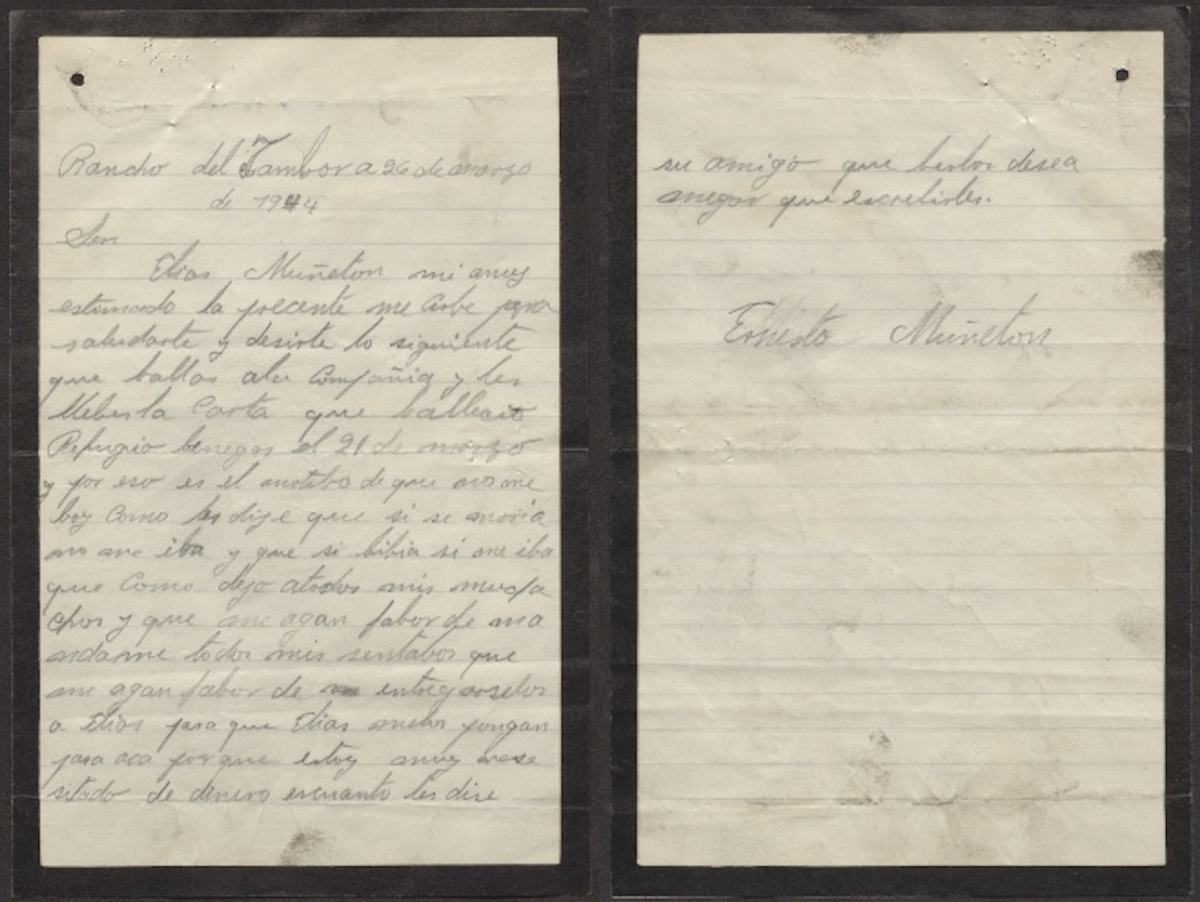 Rancho del Tambor a 26 de marzo
de 1944
Sr.
Elias Muñeton mi muy
estimado la precente me cirbe para
saludarte y desirte lo siguiente
que ballas ala Compañia y les
llebes la Carta que fallecio
Refugio benegas el 21 de marzo
y por eso es el motibo de que no me
boy Como les dije que si se moria
no me iba y que si bibia si me iba
que Como dejo atodos mis mucha
chos y que me agan fabor de ma
ndarme todos mis sentabos que
me agan fabor de entregarselos
a Elias para que Elias melos pongan
para aca porque estoy muy nese
sitado de dinero escuanto les dise
su amigo que berlos desea
megor que escrebirles.
Ernesto Muñeton